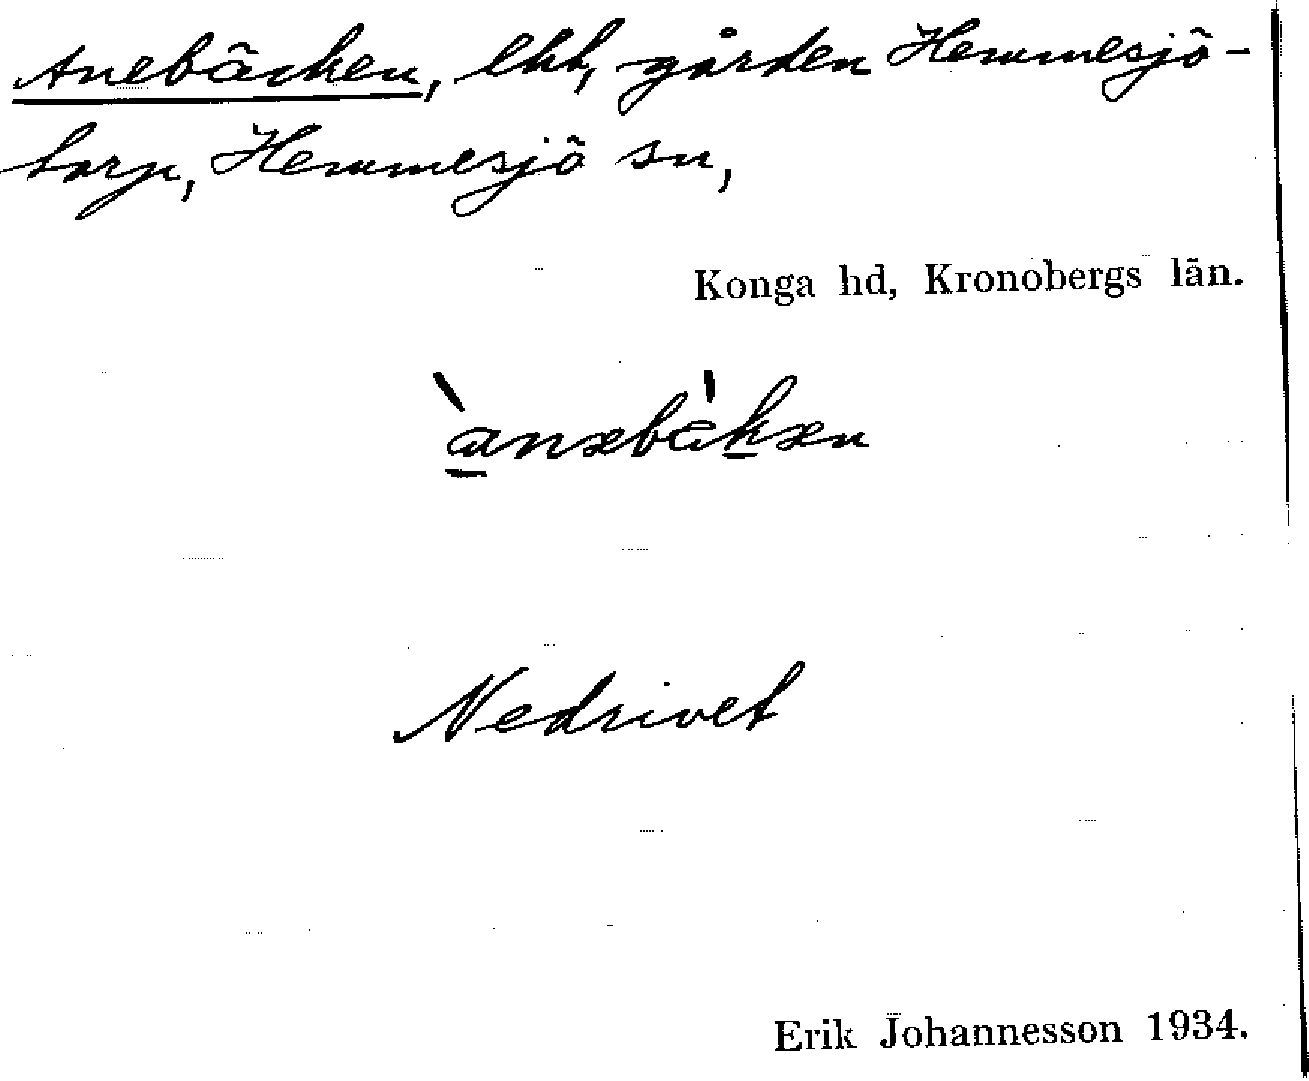 Anebäcken, lht, gården Hemmesjö-
torp, Hemmesjö sn,
Konga hd, Kronobergs län.
ànəbä̀kən
Nedrivet
Erik Johannesson 1934.